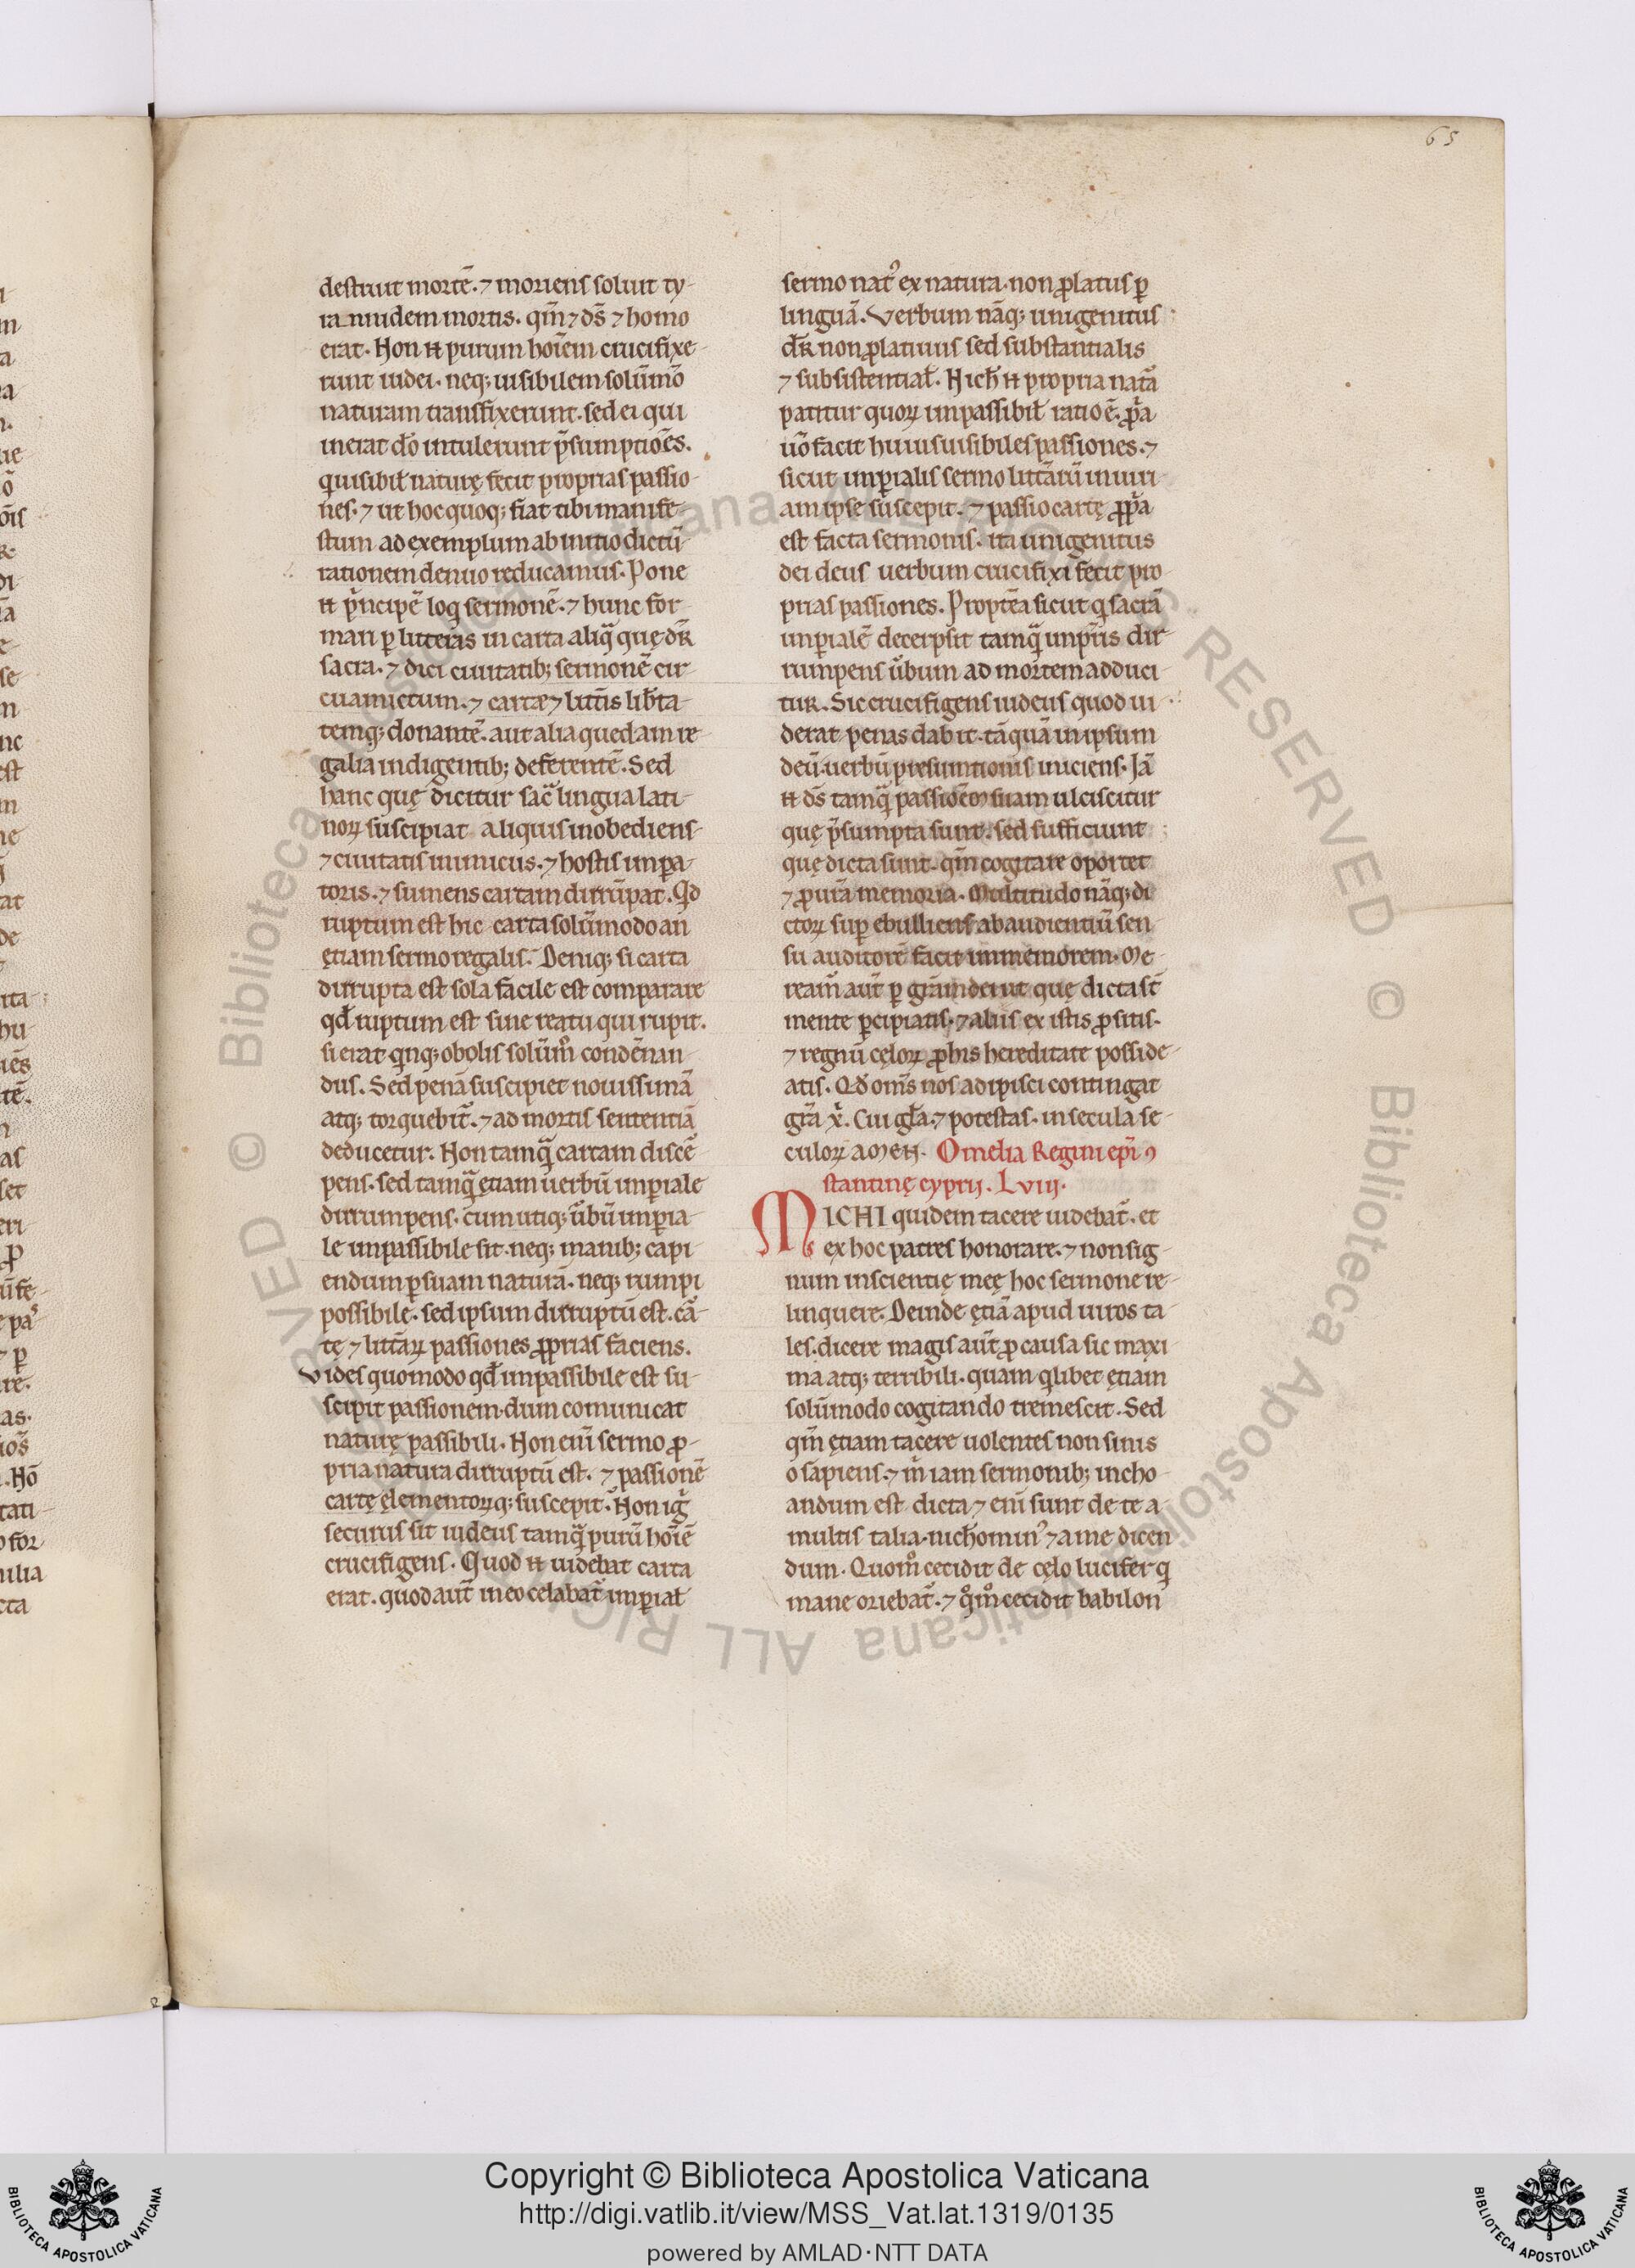 65
destruit mortē. ⁊ moriens soluit ty-
rannidem mortis. qm̄ ⁊ ds̄ ⁊ homo
erat. Non n̄ purum hoīem crucifixe-
runt iudei. neq; uisibilem solūmō
naturam transfixerunt. sed ei qui
inerat dō intulerunt p̄sumptiōes.
q uisibil̄ naturę fecit proprias passio-
nes. ⁊ ut hoc quoq; fiat tibi manife-
stum ad exemplum ab initio dictū
rationem denuo reducamus. Pone
n̄ p̄ncipē loq sermonē. ⁊ hunc for-
mari ꝑ litteras in carta aliq̄ quę dr̄
sacra. ⁊ dici ciuitatib; sermonē cir-
cuamictum. ⁊ cartæ ⁊ litt̄is lib̄ta-
temq; donantē. aut alia quedam re-
galia indigentib; deferentē. Sed
hanc quę dicitur sac̄ lingua lati-
noꝝ suscipiat aliquis inobediens-
⁊ ciuitatis inimicus. ⁊ hostis inpa-
toris. ⁊ sumens cartam dirrūpat. Qd
ruptum est hic carta solūmodo an
ętiam sermo regalis. Deniq; si carta
dirrupta est sola facile est comparare
qd̄ ruptum est siue reatu qui rupit.
si erat q̄nq; obolis solūm̊ condēnan-
dus. Sed penā suscipiet nouissimā
atq; torquebit̄. ⁊ ad mortis sententiā
deducetur. Non tamq̄ cartam discē-
pens. sed tamq̄ ętiam uerbū inꝑiale
dirrumpens. cum utiq; ūbū inꝑia-
le inpassibile sit. neq; manib; capi-
endum ꝑ suam naturā. neq; rumpi
possibile. sed ipsum dirruptū est. cā-
tę ⁊ litt̄aꝝ passiones ꝓprias faciens.
Vides quomodo qd̄ inpassibile est su-
scipit passionem. dum comunicat
naturę passibili. Non enī sermo ꝓ-
pria natura dirruptū est. ⁊ passionē
cartę elementoꝝq; suscepit. Non ig̅
securus sit iudeus tamq̄ purū hoīē
crucifigens. Quod n̄ uidebat carta
erat. quod aut̄ in eo celabat̄ inꝑial̄
sermo nat᾽ ex natura. non ꝓlatus ꝑ
linguā. Verbum nāq; unigenitus
dr̄ non ꝓlatiuus sed substantialis
⁊ subsistential̄. Nich̄ n̄ propria nat̄a
patitur quoꝝ inpassibil̄ ratio ē. ꝓp̄a
uō facit huius uisibiles passiones. ⁊
sicut inꝑialis sermo litt̄arū iniuri-
am ipse suscepit. ⁊ passio cartę ꝓp̄a
est facta sermonis. ita unigenitus
dei deus uerbum crucifixi fecit pro-
prias passiones. Proptēa sicut q sacrā
inꝑialē decerpsit tamq̄ inpr̄is dir-
rumpens ūbum ad mortem adduci-
tur. Sic crucifigens iudeus quod ui-
derat penas dabit. tāquā in ipsum
deū uerbū presumtionis iniciens. Jā
n̄ ds̄ tamq̄ passiōem suam ulciscitur
quę p̄sumpta sunt. sed sufficiunt
quę dicta sunt. qm̄ cogitare oportet
⁊ ꝓ ur̄a memoria. Multitudo nāq; di-
ctoꝝ suꝑ ebulliens ab audientiū sen-
su auditorē facit inmemorem. Me-
ream̄ aut̄ ꝑ gr̄am dei ut quę dicta st̄
mente ꝑcipiatis. ⁊ aliis ex istis ꝓsitis.
⁊ regnū cęloꝝ ꝓ his hereditate posside-
atis. Qd̄ om̄s nos adipisci contingat
gr̄a x̄. Cui gl̄a. ⁊ potestas. in secula se-
culoꝝ amen. Omelia Regini epī ꝯ
stantinę cyprij. Lviij.
MICHI quidem tacere uidebat̄. et
ex hoc patres honorare. ⁊ non sig-
num inscientię meę hoc sermone re-
linquere. Deinde ętiā apud uiros ta-
les. dicere magis aut̄ ꝓ causa sic maxi-
ma atq; terribili. quam q̄libet ętiam
solūmodo cogitando tremescit. Sed
qm̄ ętiam tacere uolentes non sinis
o sapiens. ⁊ m̄ iam sermonib; incho-
andum est dicta ⁊ enī sunt de te a
multis talia. nich̄omin᾽ ⁊ a me dicen
dum. Quom̊ cecidit de cęlo lucifer q
mane oriebat̄. ⁊ q̊m̊ cecidit babilon
Copyright © Biblioteca Apostolica Vaticana
http://digi.vatlib.it/view/MSS_Vat.lat.1319/0135
powered by AMLAD·NTT DATA